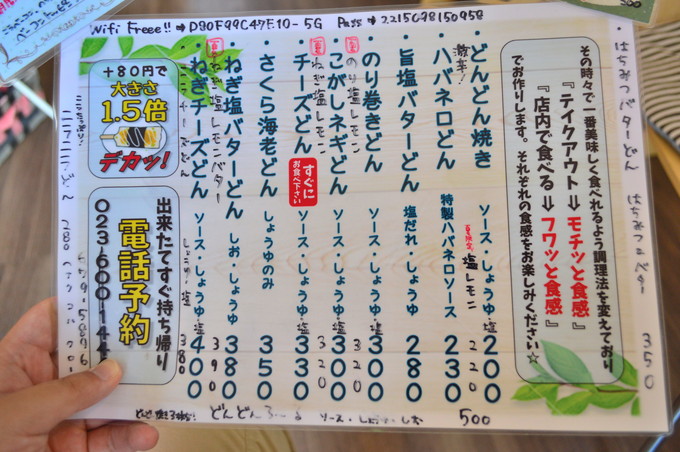 Wifi Freee!! ⇒ D80F99C47E10-5G Pass ⇒ 2215098150958
はちみつバターどん はちみつバター 350
その時々で一番美味しく食べれるよう調理法を変えており
『テイクアウト⇒モチッと食感』
『店内で食べる⇒フワッと食感』
でお作りします。それぞれの食感をお楽しみください☆
・どんどん焼き ソース・しょうゆ・塩 200
激辛!
夏限定 塩レモン 220
・ハバネロどん 特製ハバネロソース 230
・旨塩バターどん 塩だれ・しょうゆ 280
・のり巻きどん ソース・しょうゆ 300
のり塩レモン 320
・こがしネギどん ソース・しょうゆ・塩 300
ねぎ塩レモン 320
・チーズどん ソース・しょうゆ・塩 330
すぐに
お食べ下さい
・さくら海老どん しょうゆのみ 350
・ねぎ塩バターどん しお・しょうゆ 380
ねぎ塩レモンバター 390
・ねぎチーズどん ソース・しょうゆ・塩 400
380
+80円で
大きさ
1.5倍
デカッ!
出来たてすぐ持ち帰り
電話予約
023-600-144
どんどん ソース・しょうゆ・しお 500